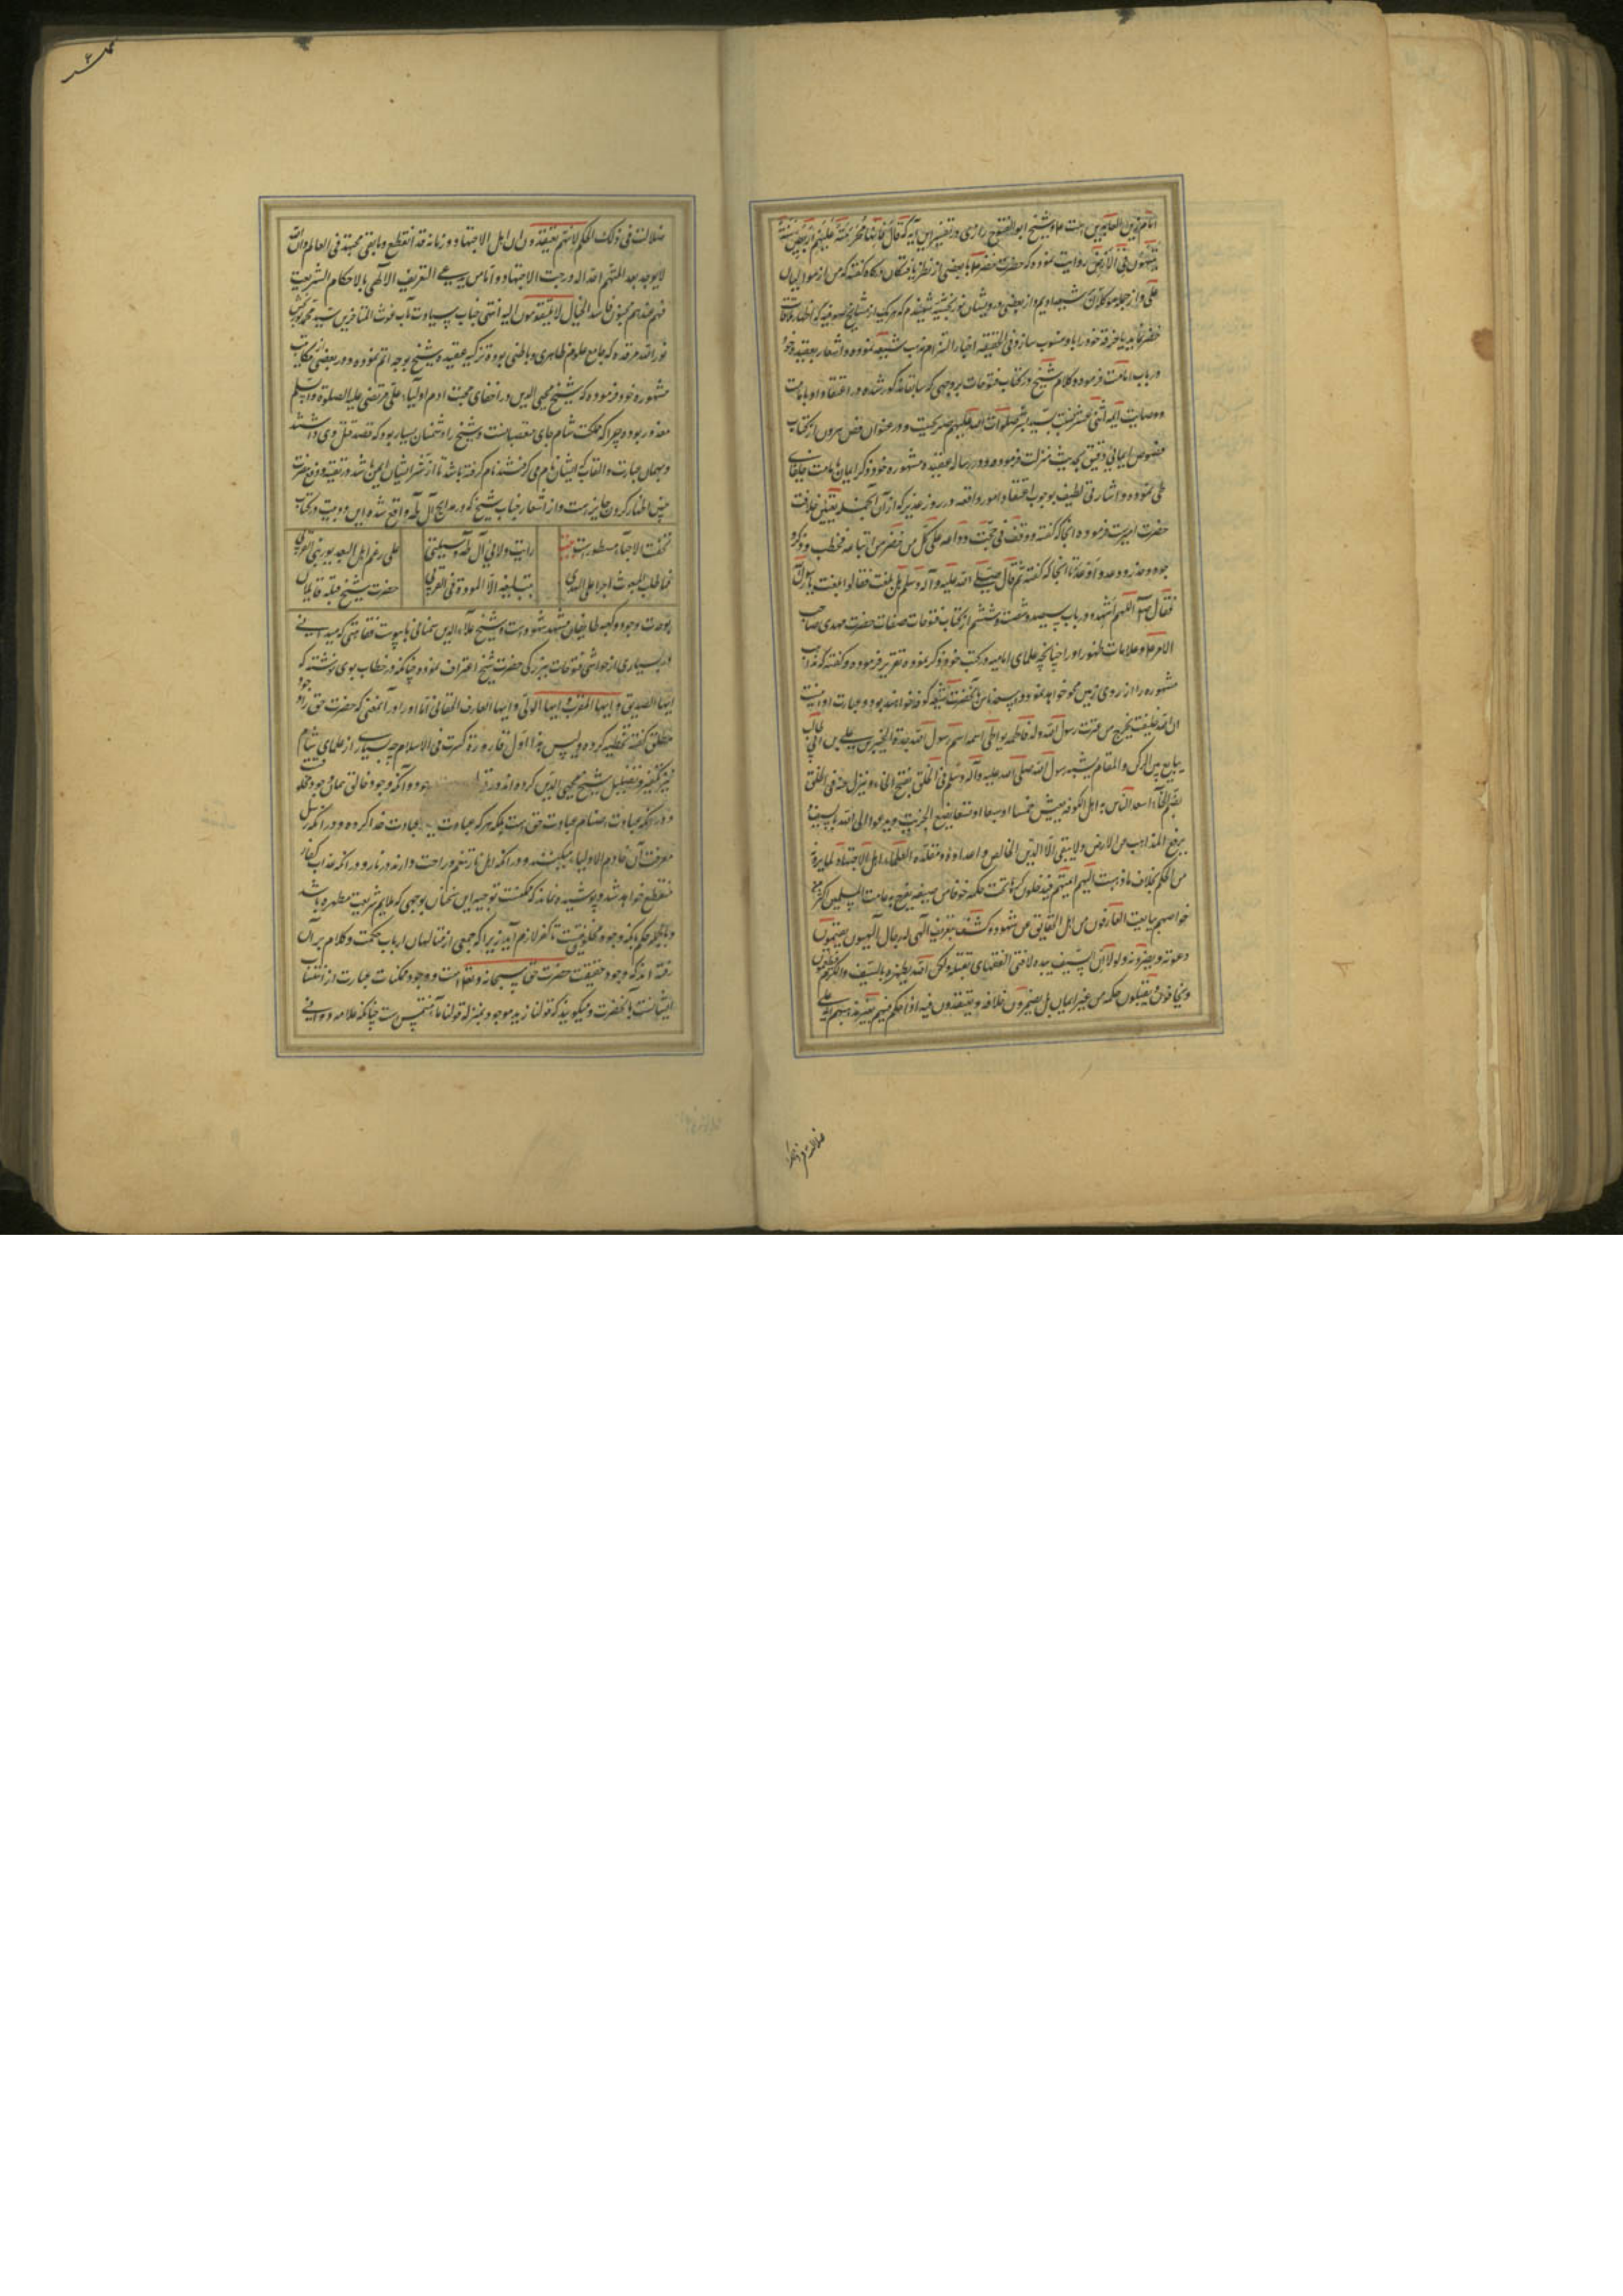 امام زین العابدین است عم و شیخ ابوالفتوح رازی در تفسیر این آیه که قال فانها محرمة علیهم اربعین سنة
یتیهون فی الارض روایت نموده که حضرت خضر عم با بعضی از نظر یافتکان درکاه کفته که من از موالیان
علی و از جمله موکلان شیعه اویم و از بعضی درویشان نوربخشیه شنیدم که هر یک از مشایخ صوفیه که اظهار ملاقات
خضر نماید یا خرقه خود را باو منسوب سازد فی الحقیقه اخبار از التزام مذهب شیعه نموده و اشعار بعقیده خود
در باب امامت فرموده و کلام شیخ در کتاب فتوحات بر وجهی که سابقا مذکور شده در اعتقاد او بامامت
و وصایت ایمه اثنی عشر بنسبت سید بشر صلوات الله علیهم صریحست و در عنوان فص هرون از کتاب
فصوص ایمائی دقیق بحدیث منزلت فرموده و در رساله عقیده مشهوره خود ذکر ایمان بامامت خلفای
طی نموده و اشارتی لطیف بوجوب اعتقاد امور واقعه در روز غدیر که از آن جمله تعیین خلافت
حضرت امیرست فرموده آنجا که کفته و وقف فی حجت وداعه علی کل من حضر من اتباعه فخطب و ذکر و
خوف و حذر و وعد و اوعد تا آنجا که کفته ثم قال صلی الله علیه و آله و سلم هل بلغت فقالوا بلغت یا رسول الله
فقال صلعم اللهم اشهد و در باب سیصد و شصت و ششم از کتاب فتوحات صفات حضرت مهدی صاحب
الامر عم و علامات ظهور او را چنانچه علمای امامیه در کتب خود ذکر نموده تقریر فرموده و کفته که مذاهب
مشهوره را از روی زمین محو خواهد نمود و اسعد ناس بآنحضرت اهل کوفه خواهند بود و عبارت او اینست
ان لله خلیفة یخرج من عترت رسول الله ولد فاطمه یواطی اسمه اسم رسول الله جده الحسین بن علی بن ابی طالب
یبایع بین الرکن و المقام یشبه رسول الله صلی الله علیه و آله و سلم فی الخلق بفتح الخاء و ینزل عنه فی الخلق
بضم الخاء اسعد الناس به اهل الکوفه یعیش خمسا او سبعا او تسعا یضع الجزیت و یدعوا الی الله بالسیف و
یرفع المذاهب من الارض ولا یبقی الا الدین الخالص و اعداؤه مقلده العلماء اهل الاجتهاد لما یرونه
من الحکم بخلاف ما ذهبت الیهم ایمتهم فیدخلون کرها تحت حکمه خوفا من سیفه یفرح به عامت المسلمین اکثر من
خواصهم یبایعه العارفون من اهل الحقایق عن شهود و کشف بتعریف الهی له رجال الهیون یقیمون
دعوته و ینصرونه ولولا ان السیف بیده لافتی الفقهای بقتله ولکن الله یظهره بالسیف والکرم فیطمعون
و یخافون و یقبلون حکمه من غیر ایمان بل یضمرون خلافه و یعتقدون فیه اذا حکم فیهم بغیر مذهبهم انه علی
ضلالت فی ذلک
ضلالت فی ذلک الحکم لانهم یعتقدون ان اهل الاجتهاد و زمانه قد انقطع و ما بقی مجتهد فی العالم و ان الله
لا یوجد بعد ایمتهم احدا له درجت الاجتهاد و اما من یدعی التعریف الالهی بالاحکام الشریعت
فهو عندهم مجنون فاسد الخیال لا یلتفتون الیه انتهی و جناب سیادت مآب غوث المتاخرین سید محمد نوربخش
نور الله مرقده که جامع علوم ظاهری و باطنی بوده تزکیه عقیده شیخ بوجه اتم نموده و در بعضی از مکاتب
مشهوره خود فرموده که شیخ محیی الدین در اخفای محبت آدم اولیا علی مرتضی علیه الصلوة و السلم
معذور بوده چرا که مملکت شام جای متعصبانست و شیخ را دشمنان بسیار بود که قصد قتل وی داشتند
و بهمان عبارت و القاب که ایشان نام می کرفتند نام کرفته باشد تا از شر ایشان ایمن باشد و تقیه دفع مضرت
چنین اظهار کردن جایز است و از اشعار جناب شیخ که در مدایح آل طه واقع شده این دو بیت در کتاب
تحفت الاحباء مسطورست بیت رایت ولائی آل طه وسیلتی علی رغم اهل البعد یورثنی القربی
فما طلب المبعوث اجرا علی الهدی بتبلیغه الا المودة فی القربی حضرت شیخ قبله قایلان
بوحدت وجود و کعبه طایفان مشهد شهودست و شیخ علاء الدین سمنانی با یبوست فقاهتی که میدانی
در بسیاری از حواشی فتوحات ببزرکی حضرت شیخ اعتراف نموده چنانکه در خطاب بوی نوشته که
ایها الصدیق و ایها المقرب و ایها الولی و ایها العارف الحقانی اما او را در آنمعنی که حضرت حق را وجود
مطلق کفته تخطیه کرده و لیس هذا اول قارورة کسرت فی الاسلام چه بسیاری از علمای شام
نیز تکفیر و تضلیل شیخ محیی الدین کرده اند در قول وجود و آنکه وجود خالق همان وجود مخلوقست
و در آنکه عبادت اصنام عبادت حق است بلکه هر که عبادت بت عبادت خدا کرده و در آنکه رسل
معرفت آن خاتم الاولیاء میکنند و در آنکه اهل نار تنعم و راحت دارند در نار و در آنکه عذاب کفار
منقطع خواهد شد و پوشیده نماند که ممکنست توجیه این سخنان بوجهی که ملایم شریعت مطهره باشد
و بالجمله حکم بآنکه وجود مخلوقیست تا کفر لازم آید زیرا که جمعی از متالهان ارباب حکمت و کلام بر آن
رفته اند که وجود حقیقت حضرت حق سبحانه و تعالی است و وجود ممکنات عبارت از انتساب
ایشانست بآنحضرت و میکویند که قولنا زید موجود بمنزله قولنا ماء مشمس است چنانکه علامه دوانی